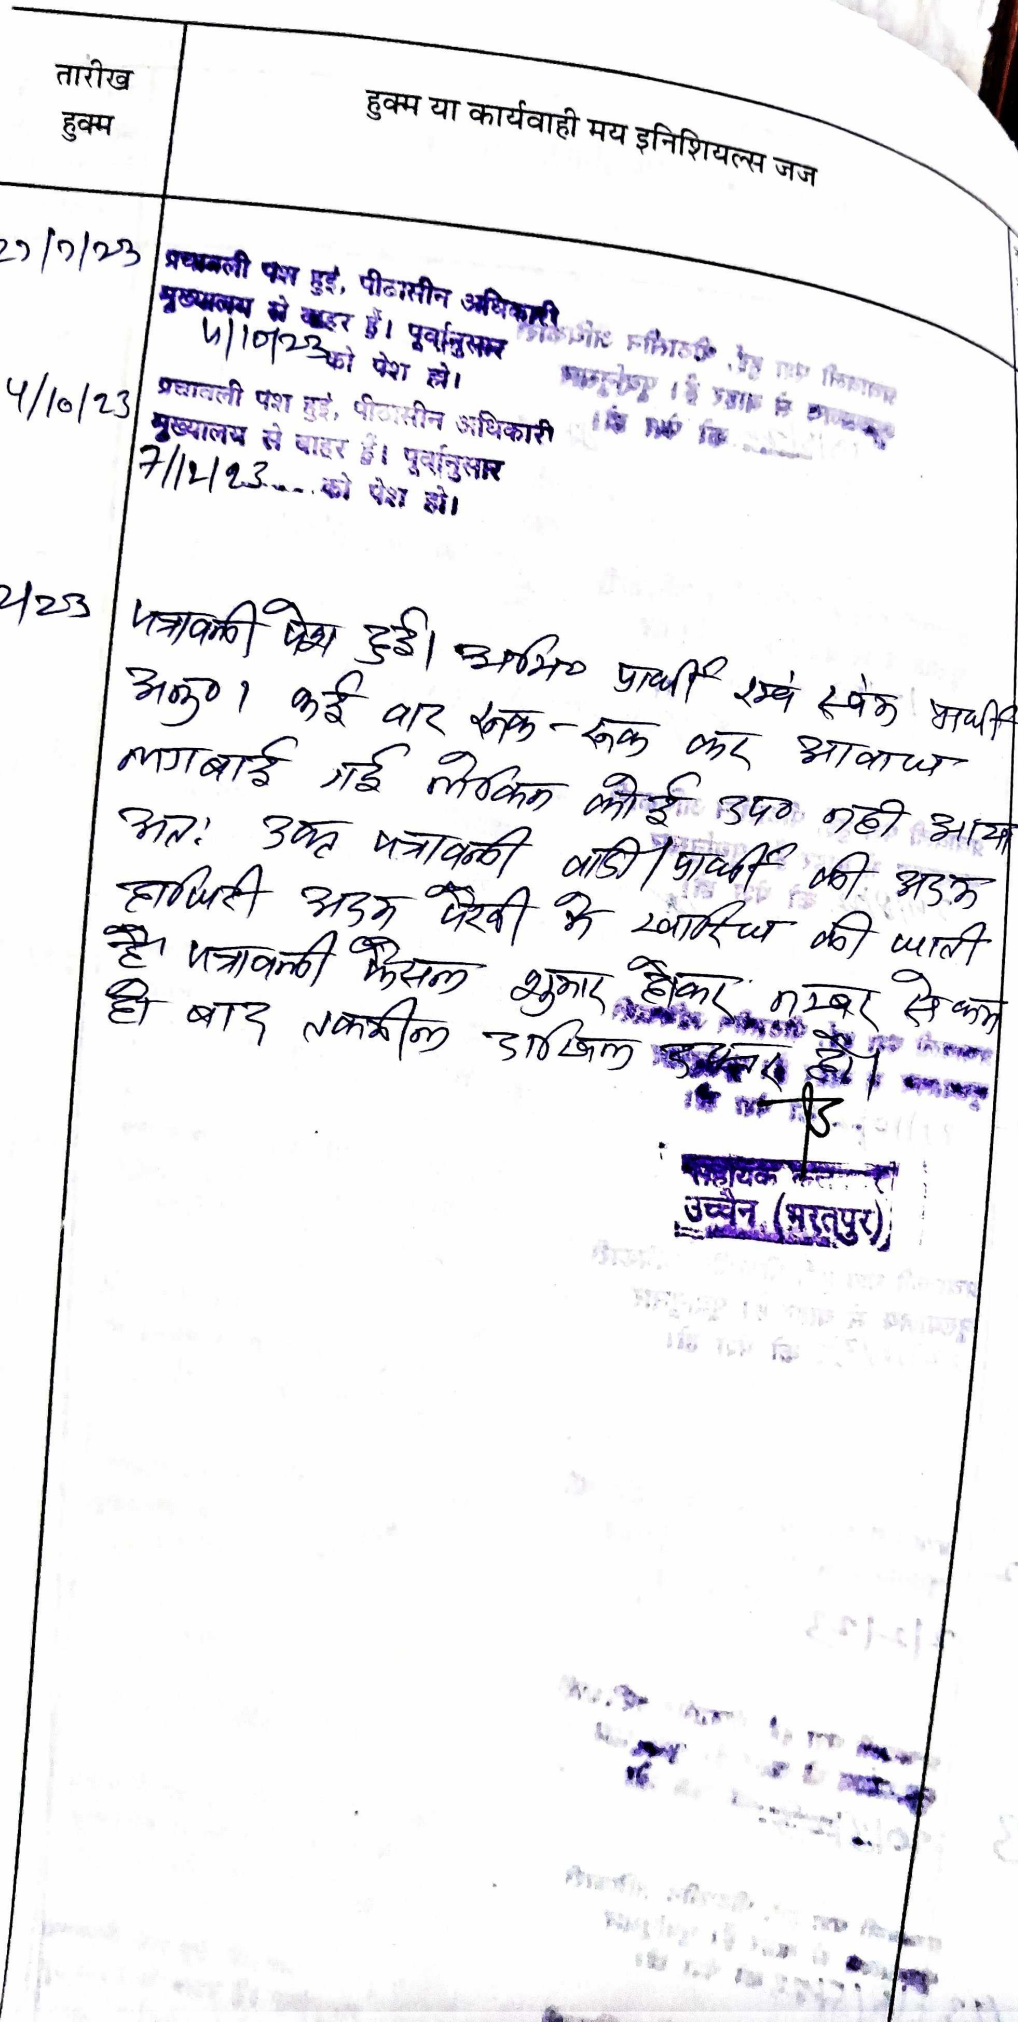 तारीख
हुक्म
हुक्म या कार्यवाही मय इनिशियल्स जज
27/7/23
पत्रावली पेश हुई, पीठासीन अधिकारी
मुख्यालय से बाहर हैं। पूर्वानुसार
4/10/23 को पेश हो।
4/10/23
पत्रावली पेश हुई, पीठासीन अधिकारी
मुख्यालय से बाहर हैं। पूर्वानुसार
7/12/23.... को पेश हो।
2/23
पत्रावली पेश हुई। अभि० प्रार्थी एवं स्वंय प्रार्थी
अनु०। कई वार रूक-रूक कर आवाज
लगबाई गई लेकिन कोई उप० नही आया
अतः उक्त पत्रावली वादी/प्रार्थी की अदम
हाजिरी अदम पैरवी मे खारिज की जाती
है। पत्रावली फैसल शुमार होकर नम्बर से कम
हो बाद तकमील दाखिल दफ्तर हो।
सहायक
उच्चैन (भरतपुर)